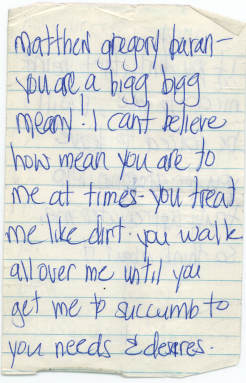 matthew gregory baran—
you are a bigg bigg
meany! I cant believe
how mean you are to
me at times - you treat
me like dirt. you walk
all over me until you
get me to succumb to
you needs & desires.